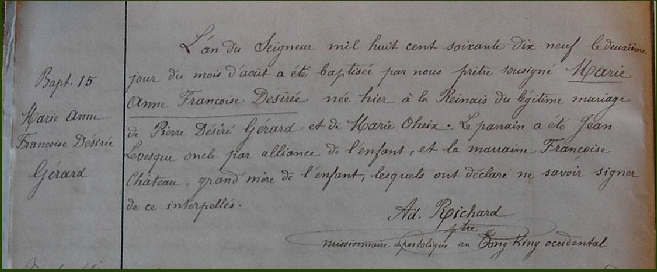 Bapt. 15
Marie Anne
Francoise Désirée
Gérard
L'an du Seigneur mil huit cent soixante dix neuf le deuxième
jour du mois d'août a été baptisée par nous prêtre soussigné Marie
Anne Francoise Désirée née hier à la Reinais du légitime mariage
de Pierre Désiré Gérard et de Marie Oheix. Le parrain a été Jean
Levesque oncle par alliance de l'enfant, et la marraine Francoise
Chateau, grand mère de l'enfant, lesquels ont déclaré ne savoir signer
de ce interpellés.
Ad. Richard
ptre
missionnaire apostolique au Tong King occidental